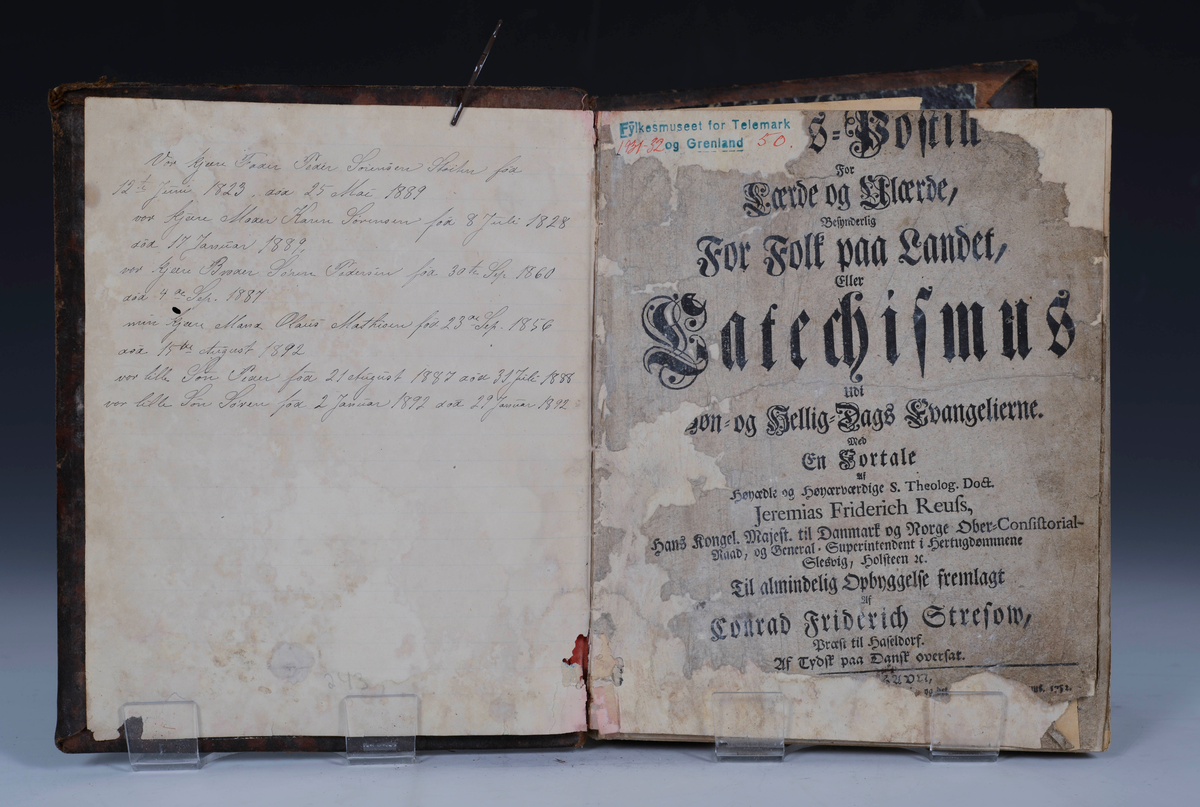 Vor kjære Fader Peder Sörensen født
12te Juni 1823. död 25 Mai 1889
vor kjære Moder Karen Sörensen fød 8 Juli 1828
död 17 Januar 1889,
vor kjære Broder Sören Pedersen fød 30te Sep. 1860
död 4de Sep. 1887
min kjære Mand Olaus Mathisen fød 23de Sep. 1856
död 15de August 1892
vor lille Sön Peder fød 21 August 1887 död 31 Juli 1888
vor lille Sön Sören fød 2 Januar 1892 död 29 Januar 1892
Fylkesmuseet for Telemark
1931-32 og Grenland 50.
S-Postill
For
Lærde og Ulærde,
Besynderlig
For Folk paa Landet,
Eller
Catechismus
Udi
Søn- og Hellig-Dags Evangelierne.
Med
En Fortale
Af
Høyædle og Høyærværdige S. Theolog. Doct.
Jeremias Friderich Reuss,
Hans Kongel. Majest. til Danmark og Norge Ober-Consistorial-
Raad, og General-Superintendent i Hertugdømmene
Slesvig, Holsteen &c.
Til almindelig Opbyggelse fremlagt
Af
Conrad Friderich Stresow,
Præst til Haseldorf.
Af Tydsk paa Dansk oversat.
og 1752.